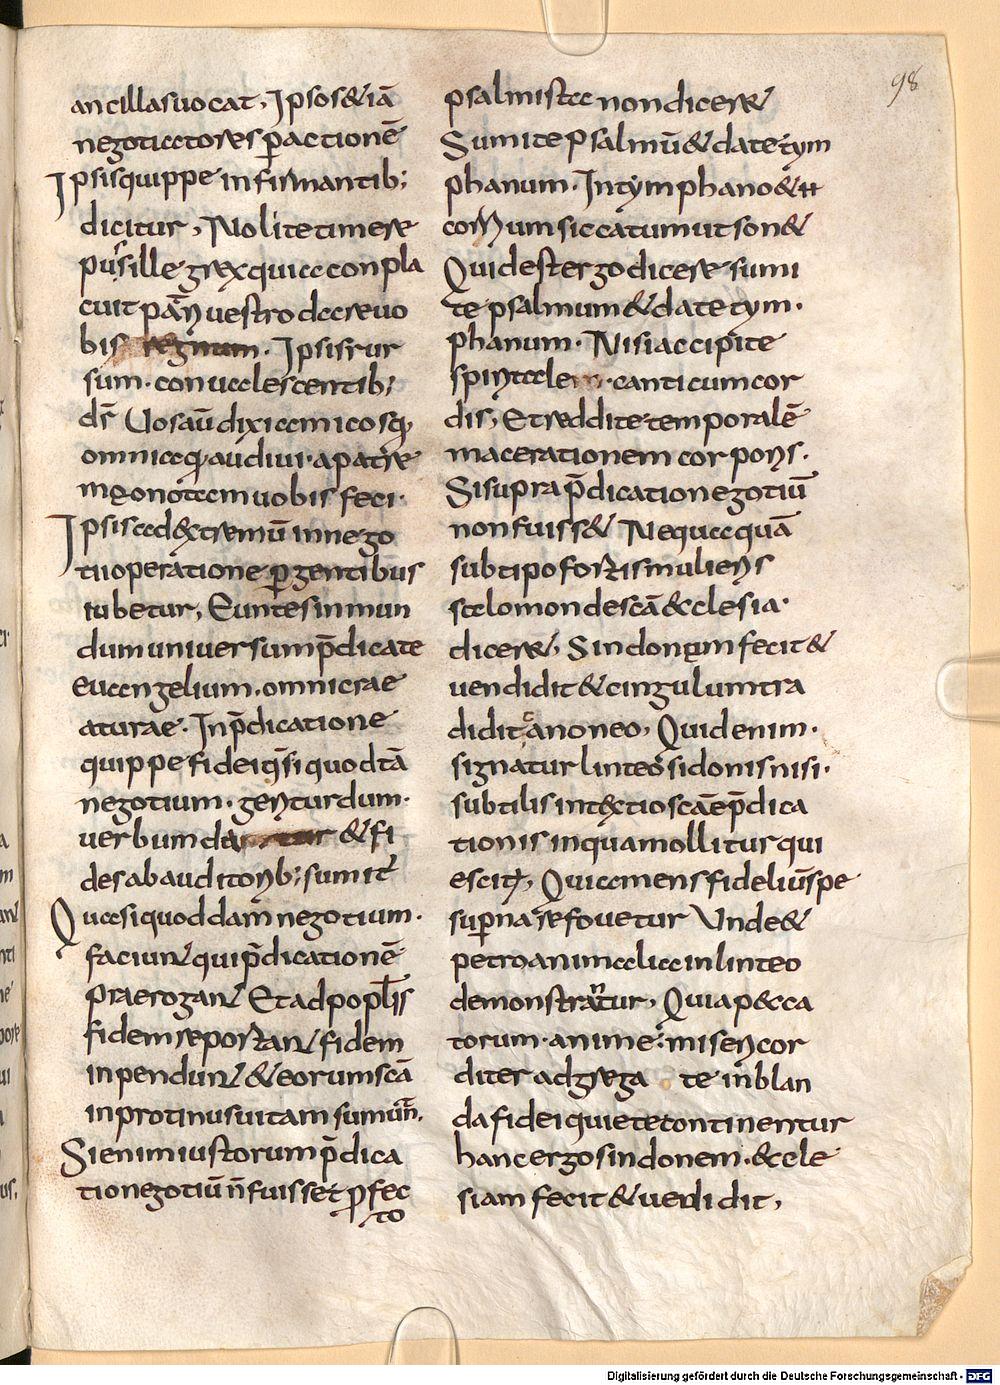 98
ancillas uocat, Ipsos & iā
negotiatores p̱actionē
Ipsis quippe infirmantib;
dicitur, Nolite timere
pusille grex quia conpla
cuit patri uestro dare uo
bis regnum. Ipsis rur
sum. conualescentib;
dr̄ Uos aū dixi amicos q,
omnia q, audiui. a patre
meo nota am uobis feci.
Ipsis ad extremū in nego
tii operatione p̱gentibus
iubetur, Euntes in mun
dum uniuersum p̄dicate
euangelium. omni crae
aturae. In p̄dicatione
quippe fidei q̄si quoddā
negotium. geritur dum.
uerbum datur & fi
des ab auditorib; sumit᷑
Quasi quoddam negotium.
faciunt qui p̄dicationē
praerogant Et ad popl̄is
fidem reportant fidem
inpendunt & eorum scā
in protinus uitam sumunt.
Si enim iustorum p̄dica
tio negotiū n̄ fuisset p̱fec
to
psalmista non diceret
Sumite psalmū & date tym
phanum. In tymphano & tt
corium siccatum ut son&
Quid est ergo dicere sumi
te psalmum & date tym.
phanum. Nisi accipite
spiritalem. canticum cor
dis, Et reddite temporalē
macerationem corporis.
Si supra p̄dicatio negotiū
non fuiss& Nequaquā
sub tipo fortis mulieris
salomon de scā eclesia.
dicer&, Sindonem fecit &
uendidit & cingulum tra
didit c̓anoneo, Quid enim.
signatur linteo sidonis nisi.
subtilis intextio scāe p̄dica
tionis in qua mollitur qui
escit᷑, Quia mens fideliū spe
sup̱na refouetur Unde &
petro animalia in linteo
demonstrantur, Quia pecca
torum. anime misericor
diter adgrega te in blan
da fidei quiete continentur
hanc ergo sindonem. ecle
siam fecit & uendidit,
Digitalisierung gefördert durch die Deutsche Forschungsgemeinschaft - DFG